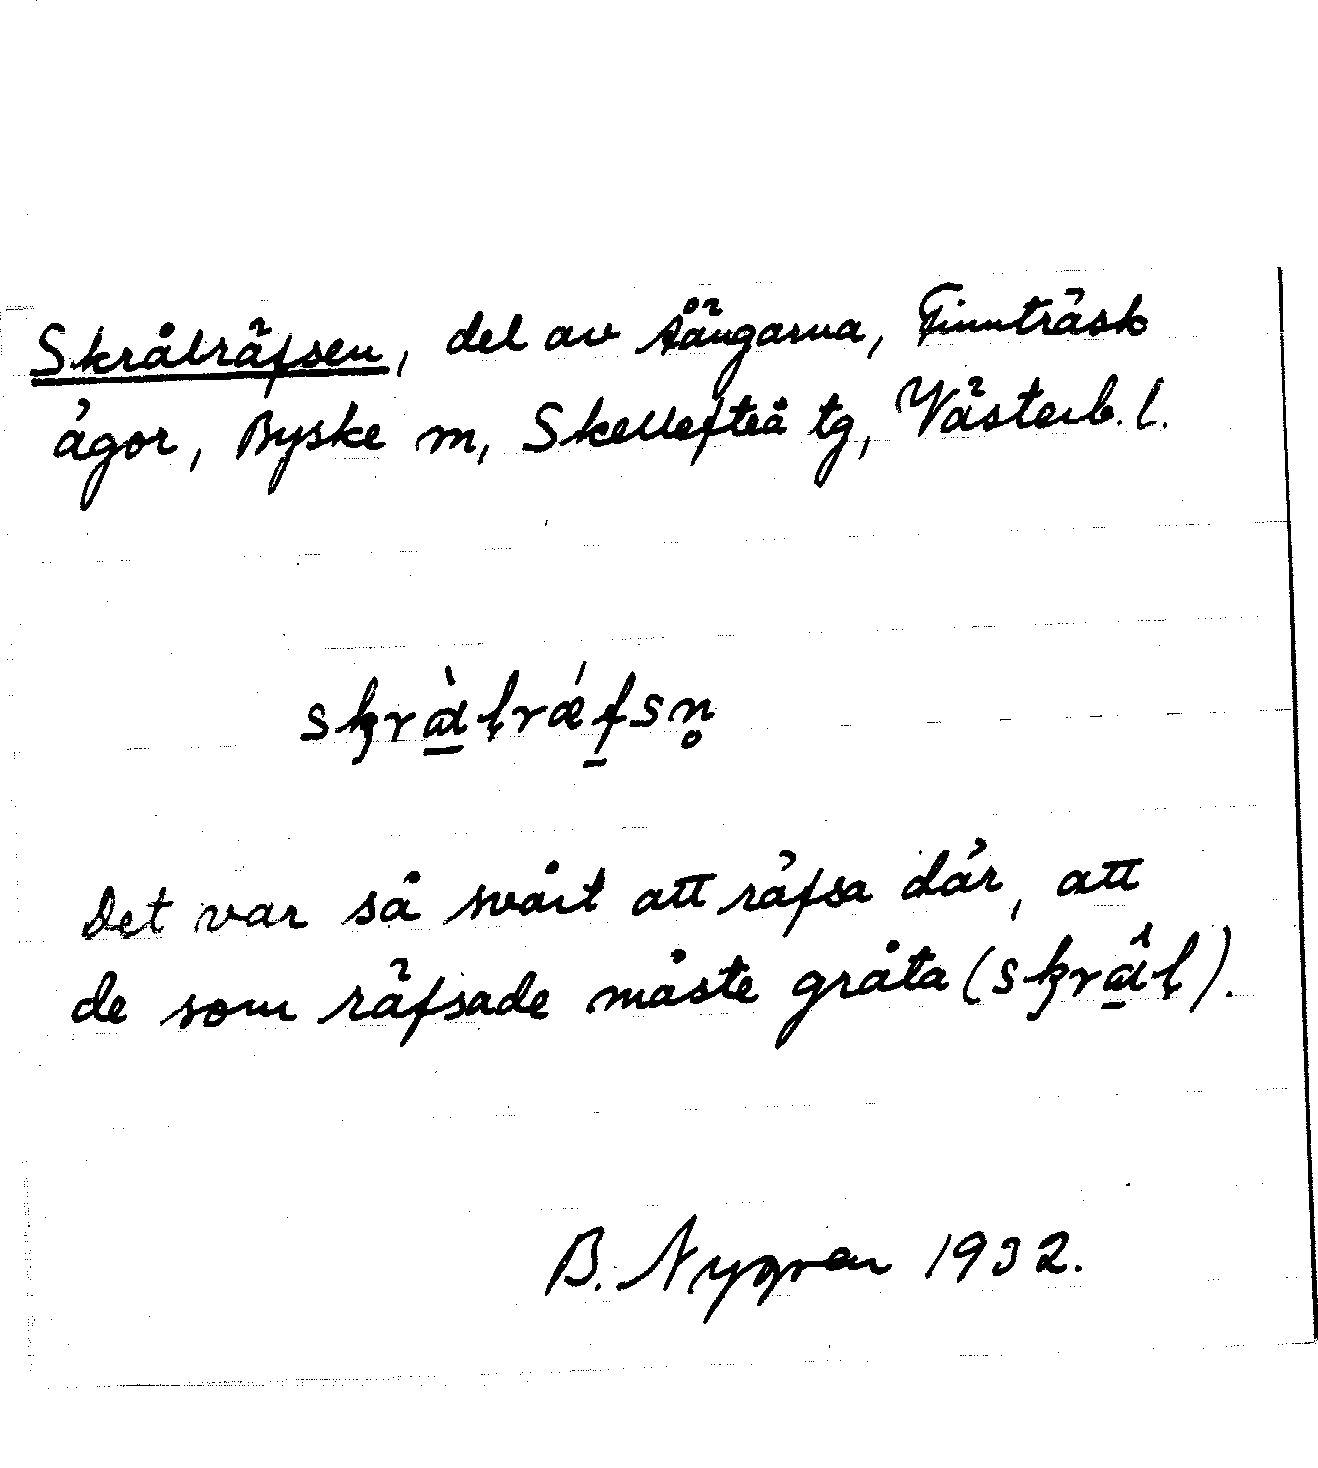 Skrålräfsen, del av Åängarna, Finnträsk
ägor, Byske m, Skellefteå tg, Västerb. l.
skràlrǽfsn̥
Det var så svårt att räfsa där, att
de som räfsade måste gråta (skrâl).
B. Nygren 1932.